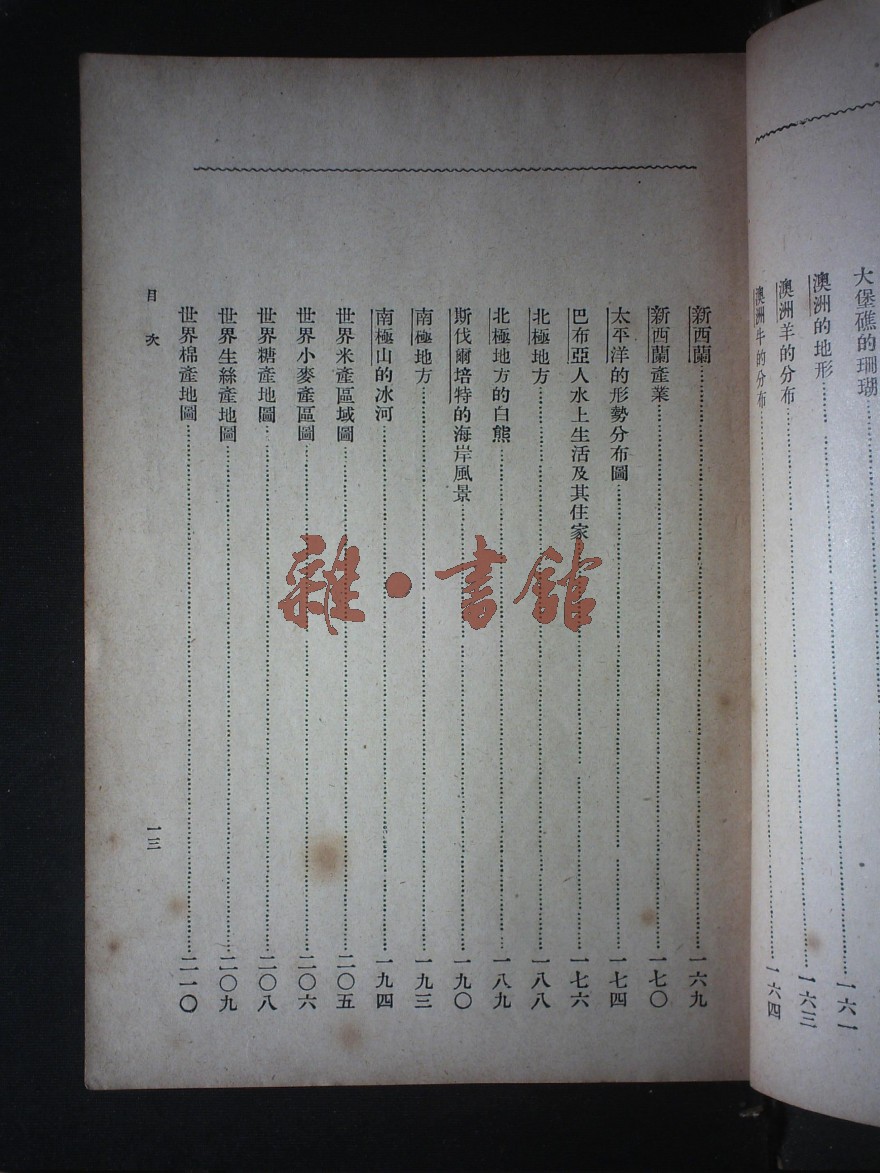 大堡礁的珊瑚⋯⋯一六一
澳洲的地形⋯⋯一六三
澳洲羊的分布
澳洲牛的分布⋯⋯一六四
新西蘭⋯⋯一六九
新西蘭產業⋯⋯一七〇
太平洋的形勢分布圖⋯⋯一七四
巴布亞人水上生活及其住家⋯⋯一七六
北極地方⋯⋯一八八
北極地方的白熊⋯⋯一八九
斯伐爾培特的海岸風景⋯⋯一九〇
南極地方⋯⋯一九三
南極山的冰河⋯⋯一九四
世界米產區域圖⋯⋯二〇五
世界小麥產區圖⋯⋯二〇六
世界糖產地圖⋯⋯二〇八
世界生絲產地圖⋯⋯二〇九
世界棉產地圖⋯⋯二一〇
目次
一三
雜·書館